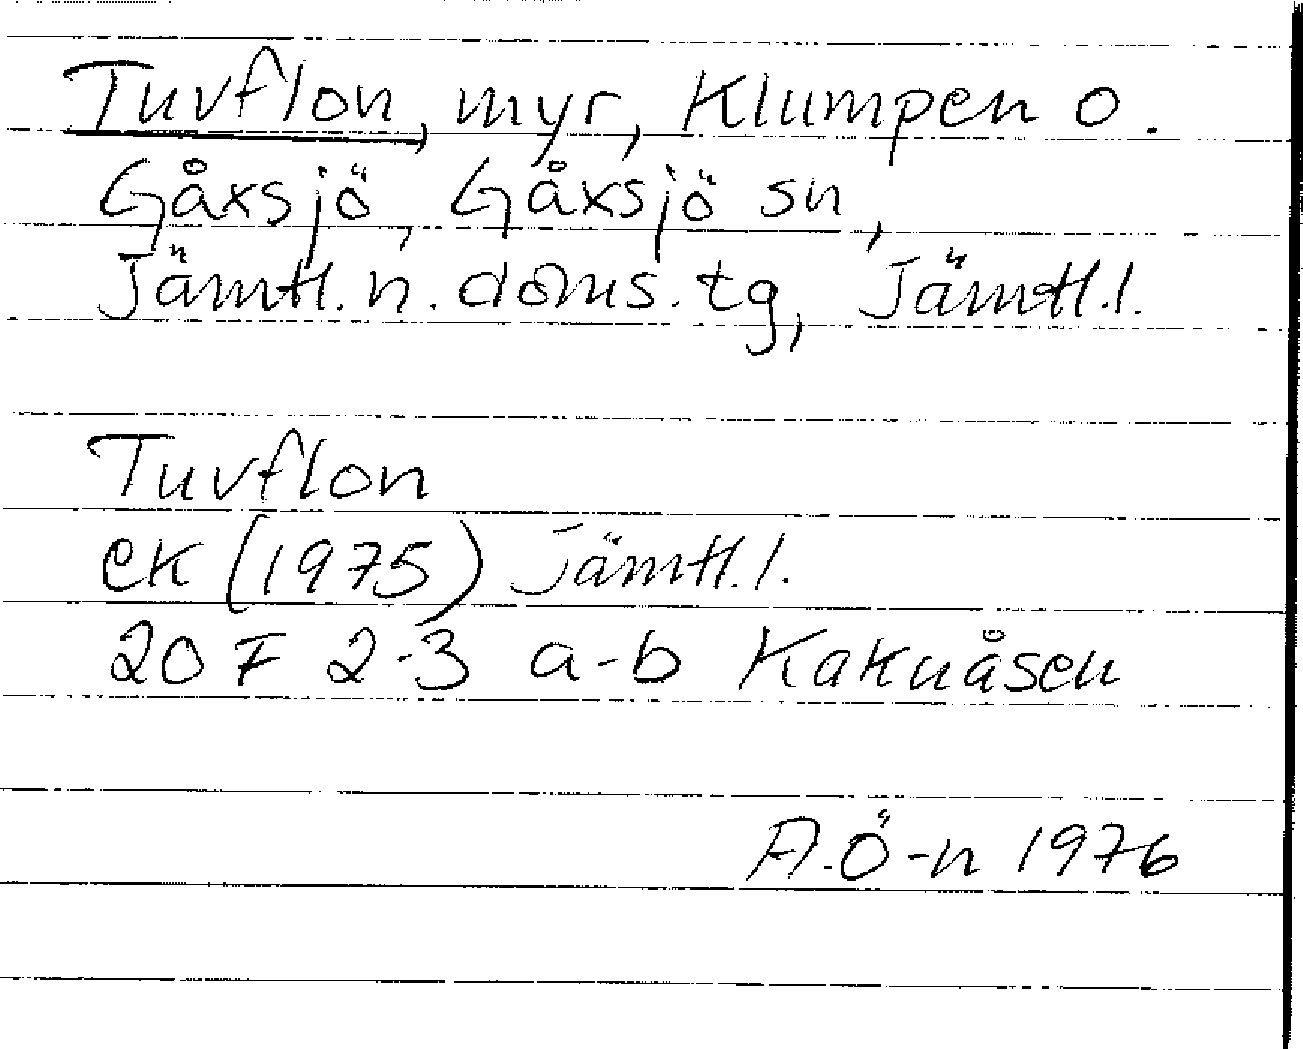 Tuvflon, myr, Klumpen o.
Gåxsjö, Gåxsjö sn,
Jämtl. n. doms. tg, Jämtl. l.
Tuvflon
ek (1975) Jämtl. l.
20 F 2-3 a-b Kaknåsen
A. Ö-n 1976